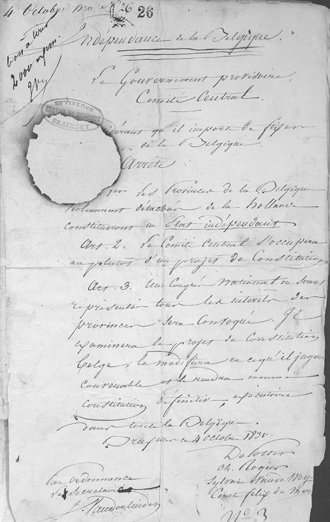 4 Octobre 1830 Nº 26 26
bon à tirer
2000
Indépendance de la Belgique.
Le Gouvernement provisoire,
Comité Central.
qu'il importe de fixer
de la Belgique
Arrête:
les Provinces de la Belgique
détachées de la Hollande
constitueront un État indépendant
Art. 2. Le Comité Central s'occupera
au plutôt d'un projet de Constitution
Art. 3. Un Congrès National où seront
représentés tous les intérêts des
provinces sera convoqué. Il
examinera le projet de Constitution
belge, le modifiera en ce qu'il jugera
convenable et le rendra comme
constitution définitive, exécutoire
dans toute la Belgique.
Bruxelles 4 octobre 1830
De Potter
Ch. Rogier
Sylvain Van de Weyer
Comte félix de Mérode
Par ordonnance
Le Secrétaire
J. Vanderlinden